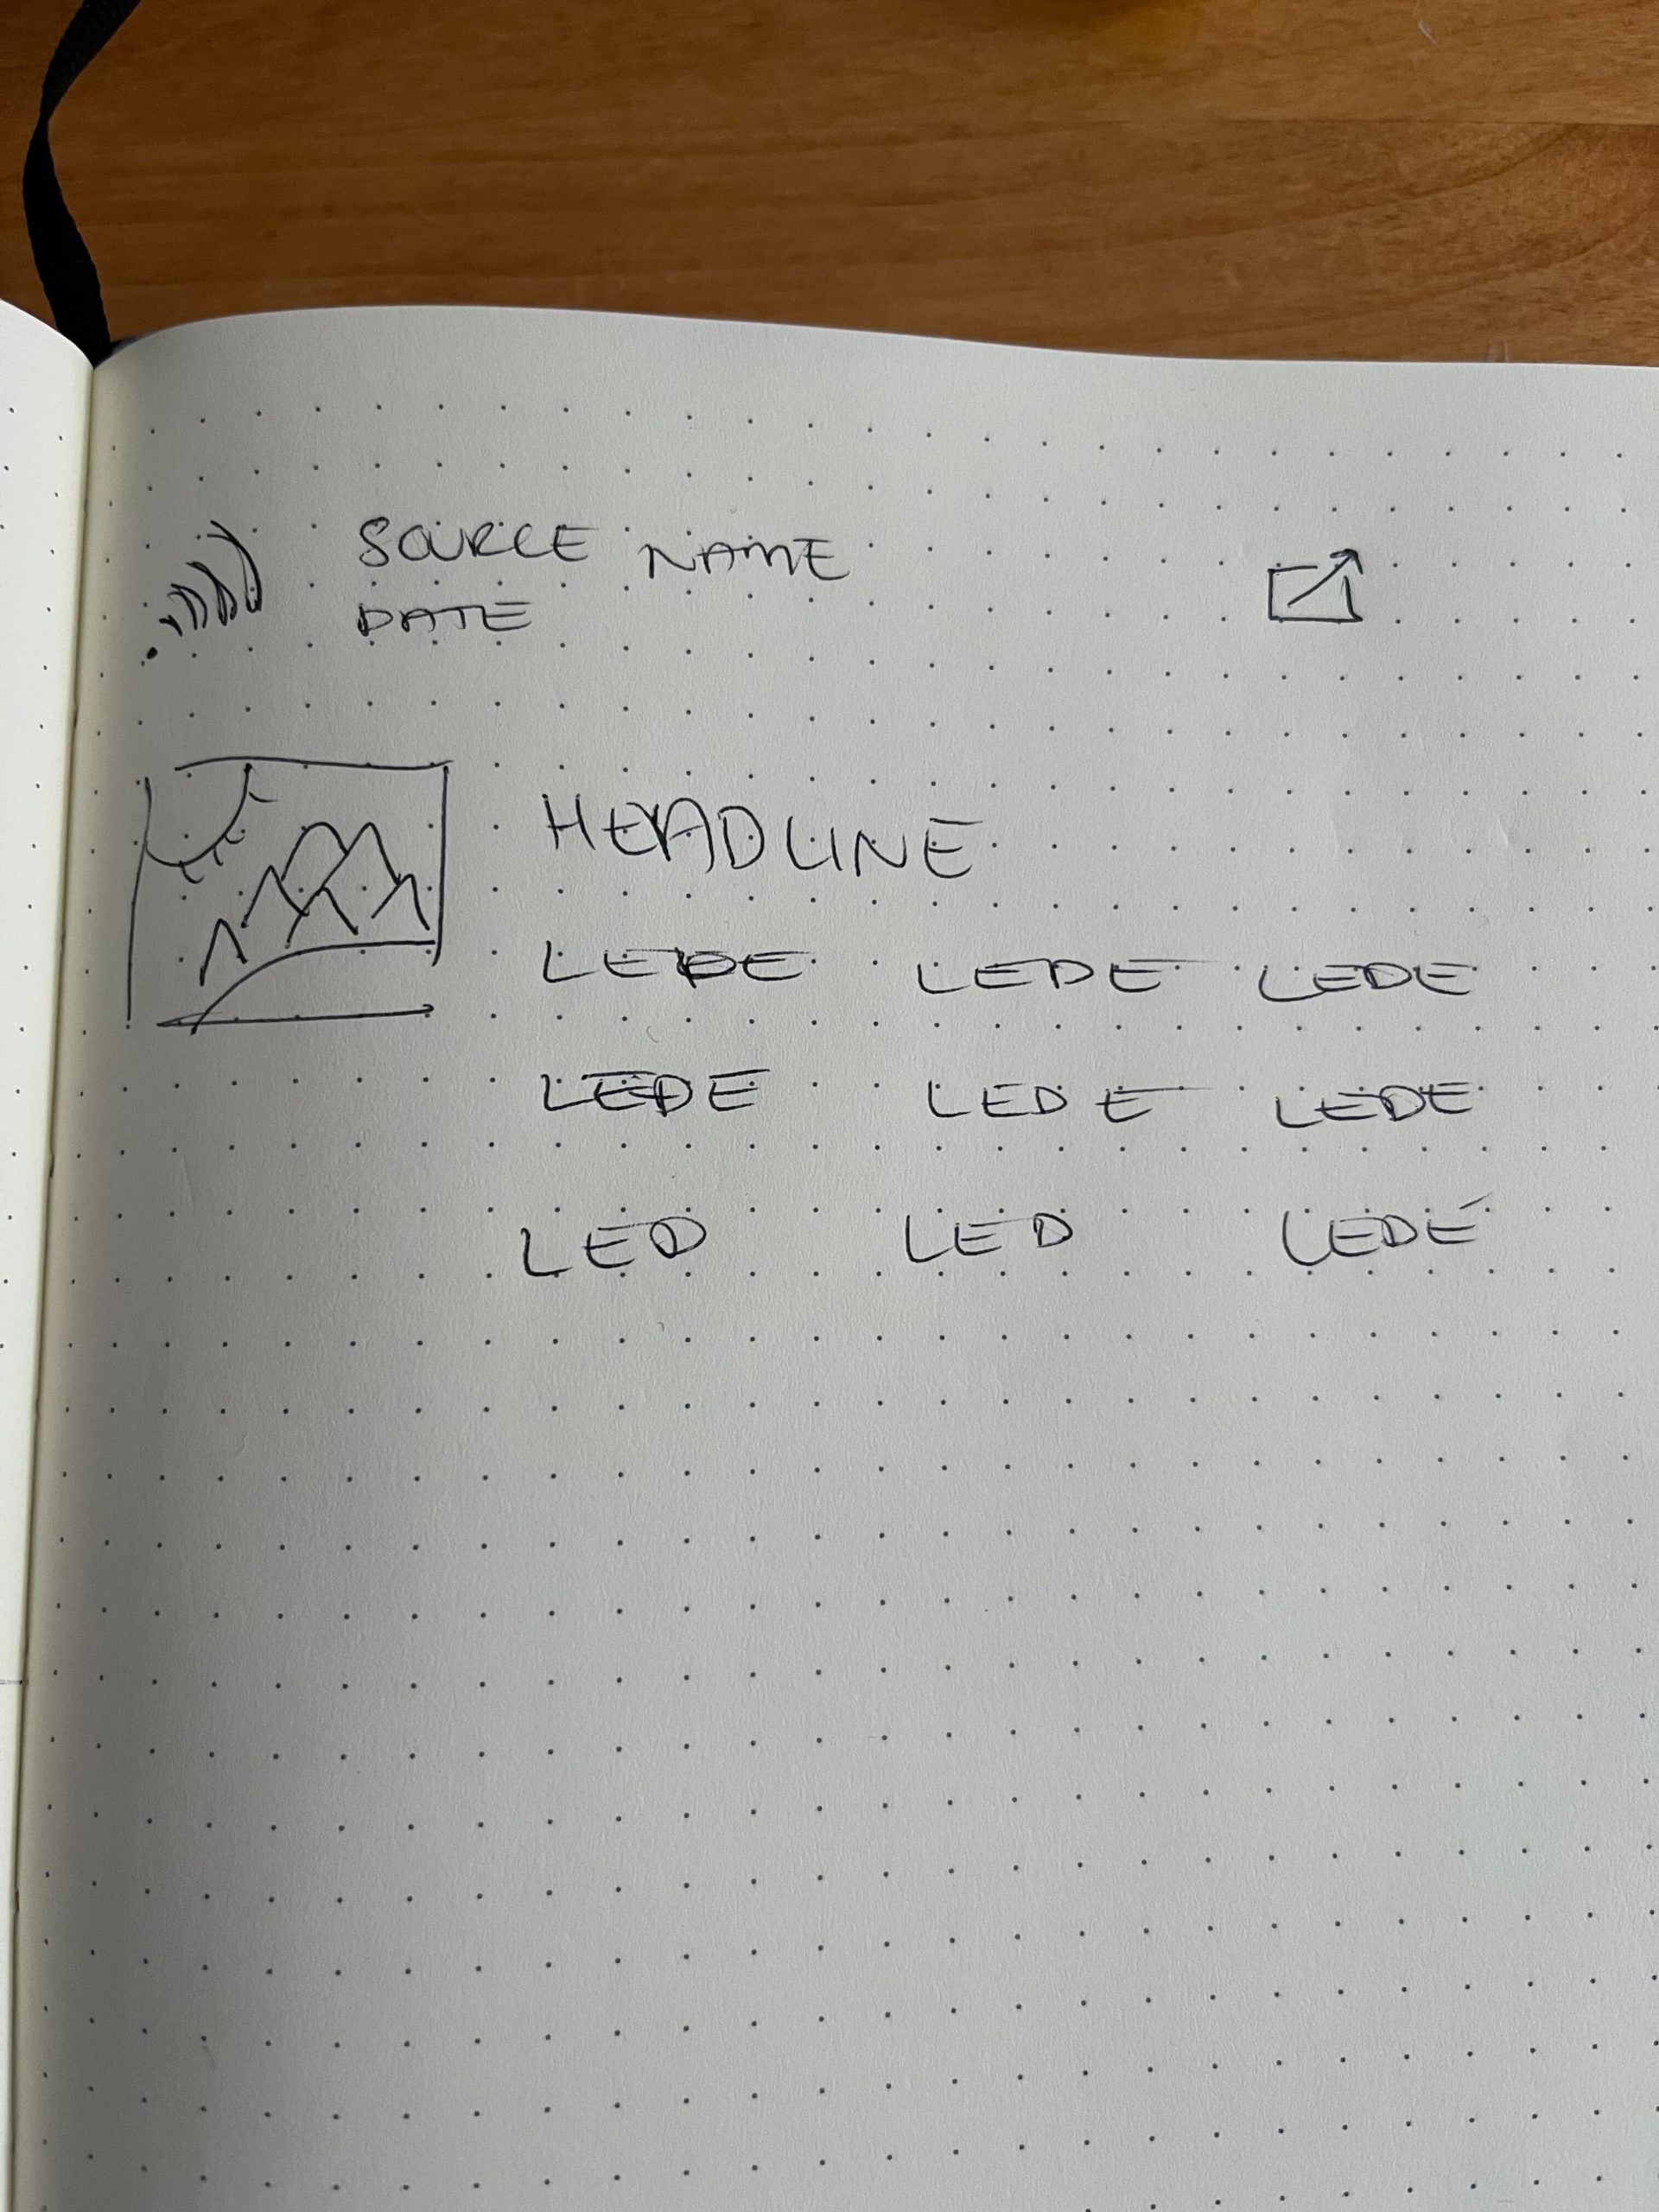 SOURCE NAME
DATE
HEADLINE
LEDE LEDE LEDE
LEDE LEDE LEDE
LED LED LEDE